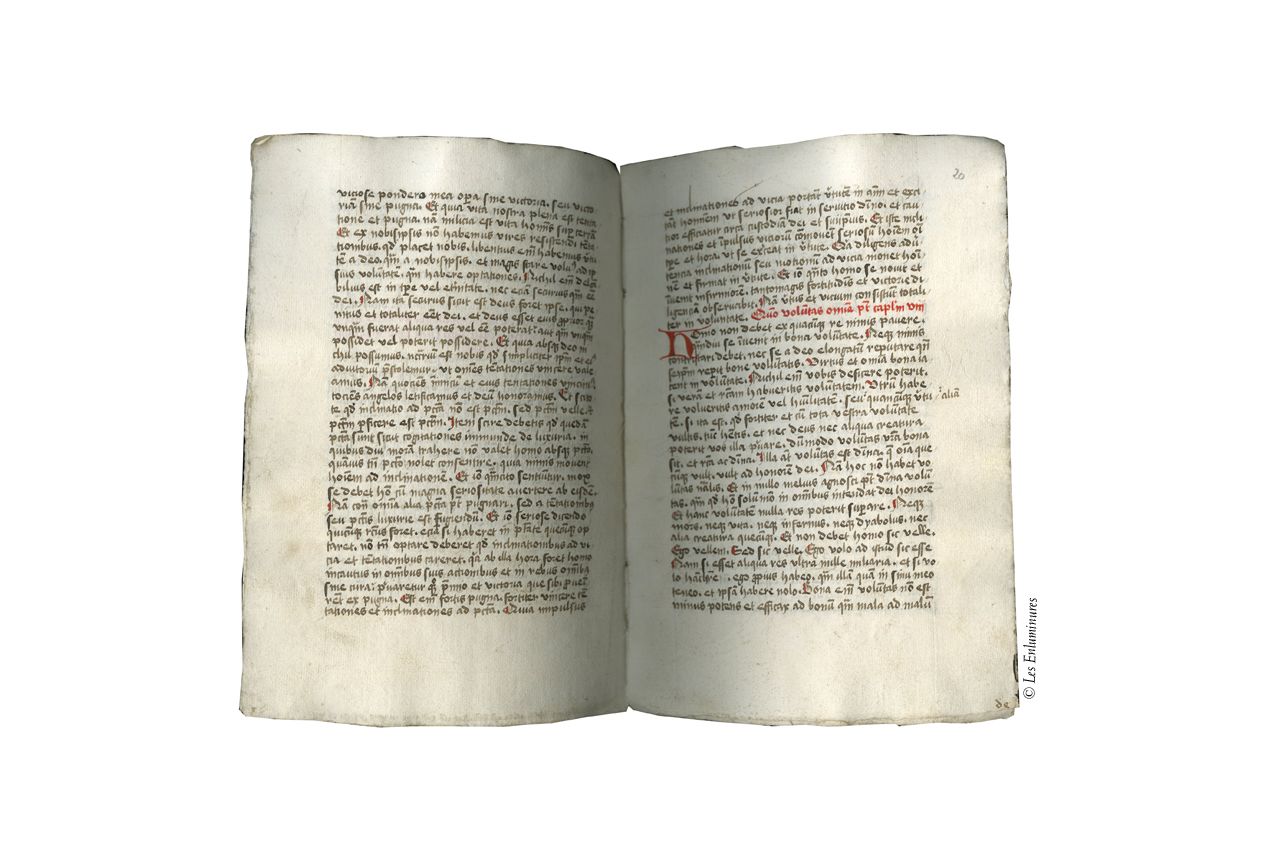 viciose pondero mea opa sine victoria, seu victo
riam sine pugna. Et quia vita nostra plena est tenta
tione et pugna. nā milicia est vita hominis sup terrā
Et ex nobisipsis nō habemus vires resistendi tēta
tionibus. qd placet nobis. libentius em̄ habemus v̄tu
tē a deo. qm̄ a nobisipsis. et magis stare volu ad ip
sius volūtatē. qm̄ habere optationes. Nichil em̄
bilius est in tpe vel et̄nitate. nec eciā securius qm̄ cū
deo. Nam ita securus sicut est deus foret ipse. qui pe
nitus et totaliter eēt dei. et deus esset eius
unqm̄ fuerat aliqua res vel eē poterat aut qm̄ unqm̄
possidet vel poterit possidere. Et quia absqʒ deo ni
chil possumus. est nobis qd simpliciter ipm̄ et ei
adiutoriū p̄stolemur. ut om̄es tētationes vincere vale
amus. Nā quociēs inimicū et eius tentationes vincimus
tociēs angelos letificamus et deū honoramus. Et scito
te qd inclinatio ad pctā nō est pctm̄. sed pctm̄ velle. et
pctm̄ pficere est pctm̄. Item scire debetis qd quedā
pctā sunt sicut cogitationes inmunde de luxuria. in
quibus diu morā trahere nō valet homo absqʒ pctō.
quāvis in pctō nolet consentire. quia nimis movent
hoiem ad inclinationē. Et iō qm̄cito sentiūtur. mox
se debet hō cū magna seriositate avertere ab eisdē.
Nā cont̄ om̄ia alia pctā pt̄ pugnari. sed a tētationibʒ
seu pctis luxurie est fugiendū. Et iō seriose dicendo
quicūqʒ rc̄tus foret. eciā si haberet in ptāte quecūqʒ op
taret. nō tn̄ optare deberet qd inclinationibus ad vi
cia et tētationibus careret. qa ab illa hora foret homo
incautus in om̄ibus suis actionibus et in rebus om̄ibʒ
sine cura. p̄varetur qʒ p̄mio et victoria que sibi pveni
rēt ex pugna. Est em̄ fortis pugna. fortiter vincere tē
tationes et inclinationes ad pctā. Quia impulsus
20
et inclinationes ad vicia portāt v̄tutē in qm̄ et exci
tāt hominem ut seriosior fiat in servitio divino. et cau
tior efficiatur circa custodiā dei et suiipsius. Et iste incli
nationes et impulsus viciorū com̄ovent seriosū hoiem oī
tpe et hora. ut se exceat in v̄tute. Qia diligens adv̄
tentia inclinationū seu motionū ad vicia monet hoi
nē et firmat in v̄tute. Et iō qn̄to homo se novit et
invenit infirmiorē. tantomagis fortitudīs et victorie di
ligenciā observabit. Nā v̄tus et vicium consistūt totali
ter in voluntate. Quō voluntas om̄ia pt̄ caplm̄ viii
Homo non debet ex quacūqʒ re nimis pavere.
se invenit in bona volūtate. Neqʒ nimis
contristari debet. nec se a deo elongatū reputare qm̄
seipm̄ repit bone volūtatis. Virtus et om̄ia bona ia
cent in volūtate. Nichil em̄ vobis deficere poterit.
si verā et rc̄tam habueritis volūtatem. Utrū habe
re volveritis amorē vel hūilitatē. seu quamcūqʒ v̄tu aliā
tē. si ita est. qd fortiter et cū tota vestra volūtate
vultis. tūc hētis. et nec deus nec aliqua creatura
poterit vos illa p̄vare. dūmodo volūtas vrā bona
sit. et rc̄tā ac divina. Illa aūt volūtas est divina. q̄ oīa que
cūqʒ vult. vult ad honorē dei. Nam hoc nō habet vo
lūtas nālis. Et in nullo melius agnosci pt̄ divina volūn
tas. qm̄ qd hō solūmō in om̄ibus intendat dei honorē
Et hanc volūtatē nulla res poterit supare. Neqʒ
mors. neqʒ vita. neqʒ infernus. neqʒ dyabolus. nec
alia creatura quecūqʒ. Et non debet homo sic velle.
Ego vellem. Sed sic velle. Ego volo ad istud sic esse
Nam si esset aliqua res ultra mille miliaria. et si vo
lo habere. ego pprius habeo. qm̄ illā quā in sinu meo
teneo. et ipsā habere nolo. Bona em̄ volūtas nō est
minus potens et efficax ad bonū qm̄ mala ad malū
de
© Les Enluminures